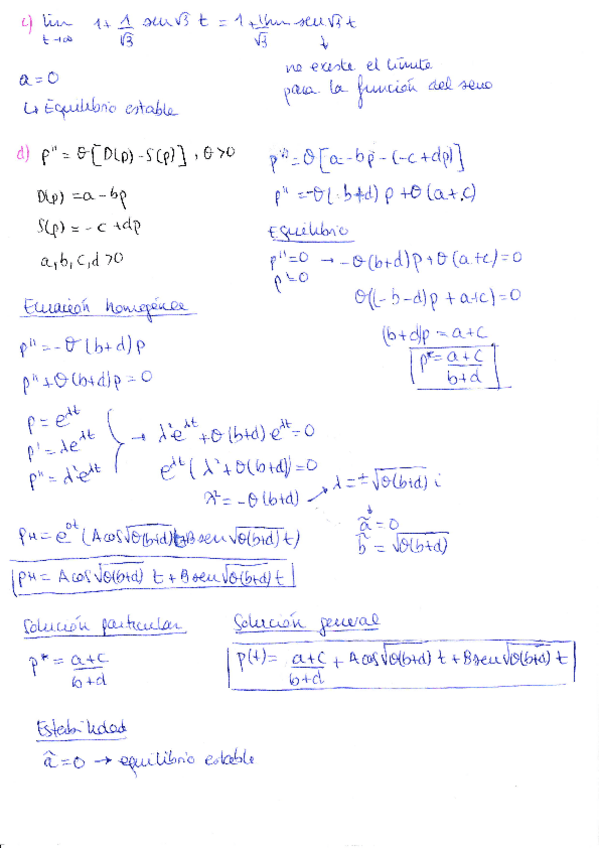 c) lim t→∞ 1 + 1/√3 sen√3 t = 1 + 1/√3 lim sen√3 t
↓
no existe el límite
para la función del seno
a = 0
↳ Equilibrio estable
d) p'' = θ[D(p) - S(p)], θ > 0
D(p) = a - bp
S(p) = -c + dp
a, b, c, d > 0
p'' = θ[a - bp - (-c + dp)]
p'' = -θ(b+d)p + θ(a+c)
Equilibrio
p'' = 0 → -θ(b+d)p + θ(a+c) = 0
p' = 0
θ((-b-d)p + a+c) = 0
(b+d)p = a+c
p* = a+c / b+d
Ecuación homogénea
p'' = -θ(b+d)p
p'' + θ(b+d)p = 0
p = e^λt
p' = λe^λt
p'' = λ²e^λt
→ λ²e^λt + θ(b+d)e^λt = 0
e^λt(λ² + θ(b+d)) = 0
λ² = -θ(b+d) → λ = ±√θ(b+d) i
↓
ã = 0
b̃ = √θ(b+d)
pH = e^0t (A cos√θ(b+d) t + B sen√θ(b+d) t)
pH = A cos√θ(b+d) t + B sen√θ(b+d) t
Solución particular
p* = a+c / b+d
Solución general
p(t) = a+c / b+d + A cos√θ(b+d) t + B sen√θ(b+d) t
Estabilidad
ã = 0 → equilibrio estable